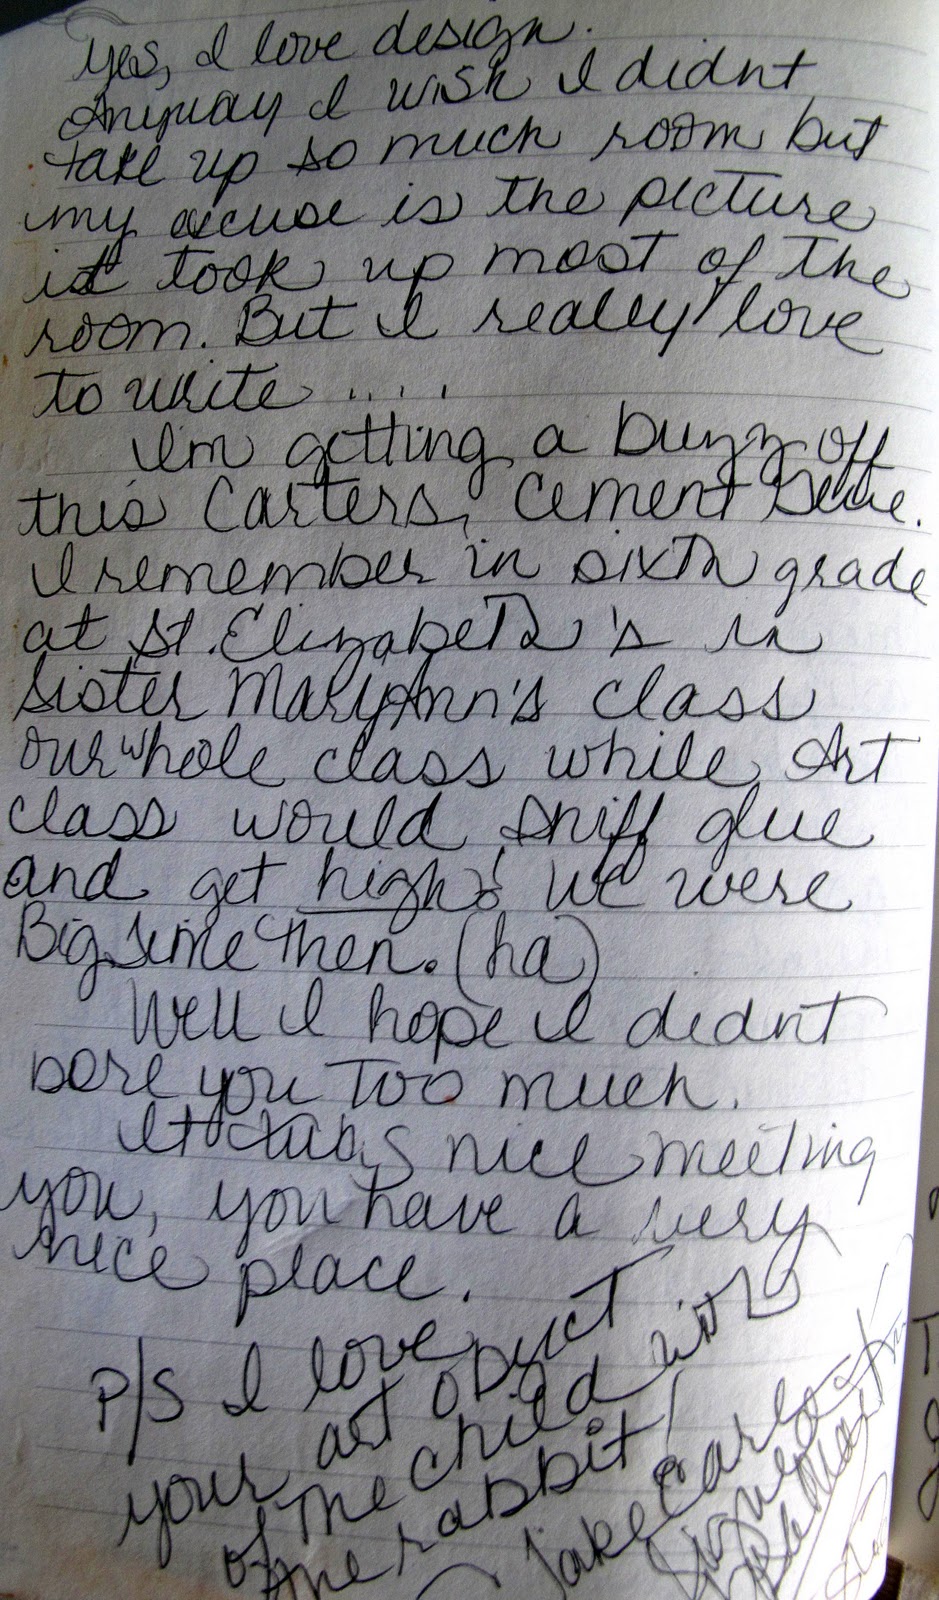 yes, I love design.
Anyway I wish I didnt
take up so much room but
my excuse is the picture
it took up most of the
room. But I really love
to write ....
I'm getting a buzz off
this Carters, Cement
I remember in sixth grade
at St. Elizabeth's in
Sister MaryAnn's class
our whole class while Art
class would sniff glue
and get high! We were
Big time then. (ha)
Well I hope I didnt
bore you too much.
It was nice meeting
you, you have a very
nice place.
P/S I love
your art object
of the child with
the rabbit!
Take Care
Signed